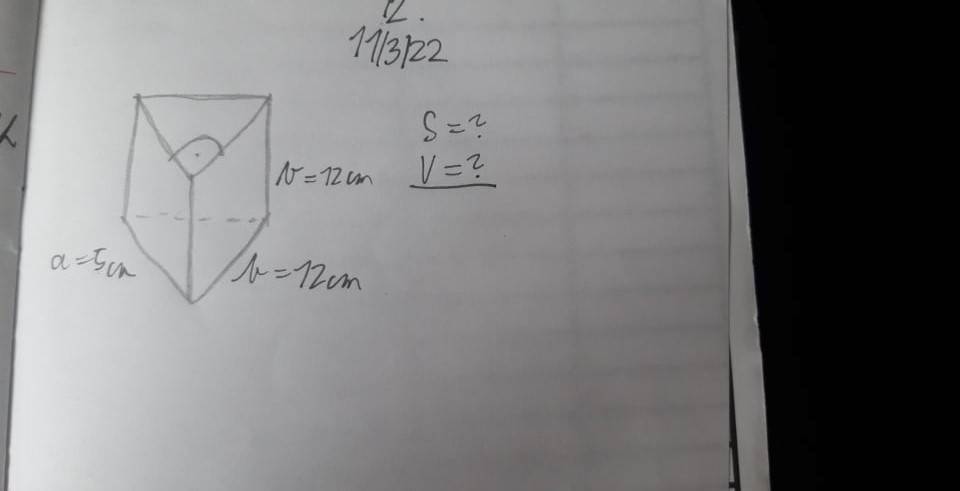 12.
11/3/22
S = ?
V = ?
v = 12cm
a = 5cm
b = 12cm